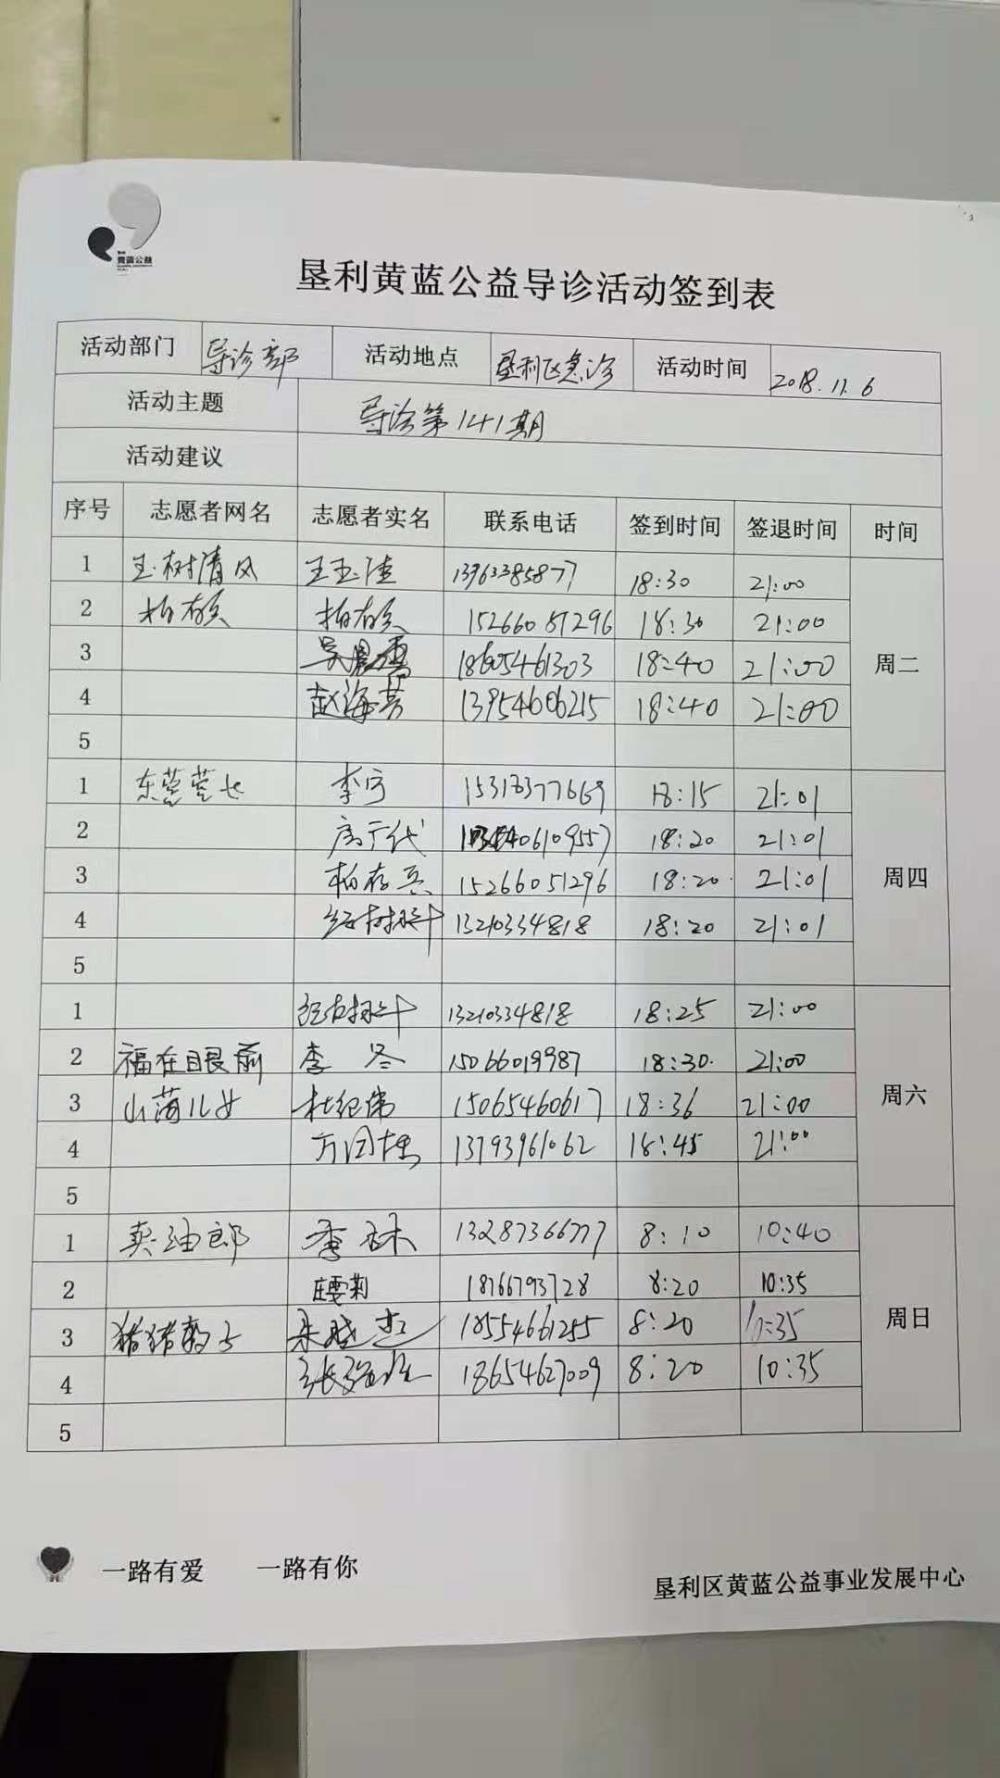 黄蓝公益
垦利黄蓝公益导诊活动签到表
活动部门 导诊部 活动地点 垦利区急诊 活动时间 2018.11.6
活动主题 导诊第141期
活动建议
序号 志愿者网名 志愿者实名 联系电话 签到时间 签退时间 时间
1 玉树清风 13963385877 18:30 21:00
2 15266051296 18:30 21:00
3 18605461303 18:40 21:00 周二
4 赵海英 13954606215 18:40 21:00
5
1 李宁 15318377669 18:15 21:01
2 18:20 21:01
3 15266051296 18:20 21:01 周四
4 13210334818 18:20 21:01
5
1 13210334818 18:25 21:00
2 福在眼前 李冬 15066019987 18:30 21:00
3 山海儿女 杜纪伟 15065460617 18:36 21:00 周六
4 13793961062 18:45 21:00
5
1 卖油郎 13287366777 8:10 10:40
2 18766793728 8:20 10:35
3 18554661255 8:20 10:35 周日
4 18654627009 8:20 10:35
5
一路有爱 一路有你
垦利区黄蓝公益事业发展中心